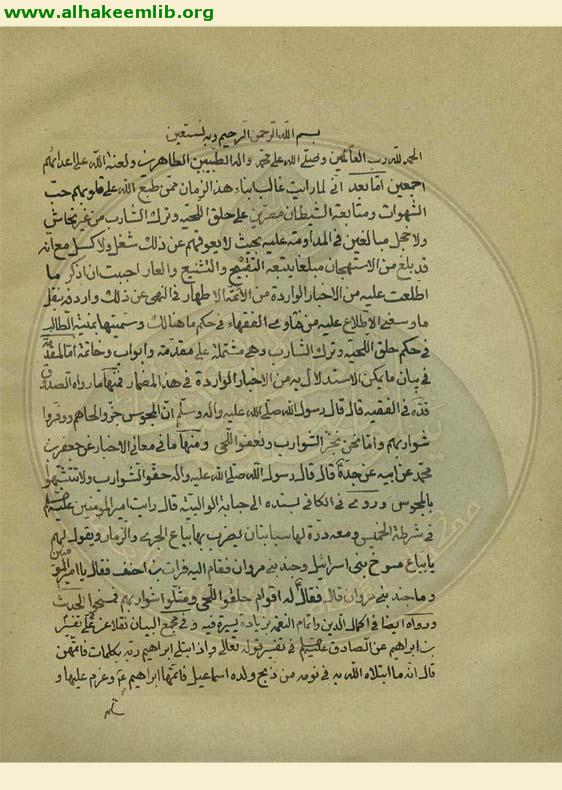 www.alhakeemlib.org
بسم الله الرحمن الرحيم وبه نستعين
الحمد لله رب العالمين وصلى الله على محمد واله الطيبين الطاهرين ولعنة الله على اعدائهم
اجمعين اما بعد اني لما رايت غالب ابناء هذا الزمان ممن طبع الله على قلوبهم حب
الشهوات ومتابعة الشيطان مصرين على حلق اللحية وترك الشارب من غير تحاش
ولا خجل مبالغين في المداومة عليه بحيث لا يعوقهم عن ذلك شغل ولا كسل مع انه
قد بلغ من الاستهجان مبلغا يتبعه التقبيح والتشنيع والعار اجببت ان اذكر ما
اطلعت عليه من الاخبار الواردة من الائمة الاطهار في النهي عن ذلك واردفه بنقل
ما وسعني الاطلاع عليه من فتاوى الفقهاء في حكم ما هنالك وسميتها بمنية الطالب
في حكم حلق اللحية وترك الشارب وهي مشتملة على مقدمة وابواب وخاتمة اما المقدمة
في بيان ما يمكن الاستدلال به من الاخبار الواردة في هذا المضمار فمنها ما رواه الصدوق
قده في الفقيه قال قال رسول الله صلى الله عليه واله وسلم ان المجوس جزوا لحاهم ووفروا
شواربهم وانا نحن نجز الشوارب ونعفو اللحى ومنها ما في معاني الاخبار عن جعفر بن
محمد عن ابيه عن جده قال قال رسول الله صلى الله عليه واله حفوا الشوارب ولا تتشبهوا
بالمجوس وروى في الكافي بسنده الى حبابة الوالبية قالت رايت امير المؤمنين عليه السلم
في شرطة الخميس ومعه درة لها سبابتان يضرب بها بياع الجري والزمار ويقول لهم
يا بياع مسوخ بني اسرائيل وجند بني مروان فقام اليه فرات بن احنف فقال يا امير المؤمنين
وما جند بني مروان قال فقال له اقوام حلقوا اللحى وفتلوا شواربهم فمسخوا الحديث
ورواه ايضا في اكمال الدين واتمام النعمة بزيادة يسيرة فيه وفي مجمع البيان نقلا عن تفسير علي
بن ابراهيم عن الصادق عليه السلم في تفسير قوله تعالى واذ ابتلى ابراهيم ربه بكلمات فاتمهن
قال انه ما ابتلاه الله به في نومه من ذبح ولده اسماعيل فاتمها ابراهيم ع وعزم عليها و